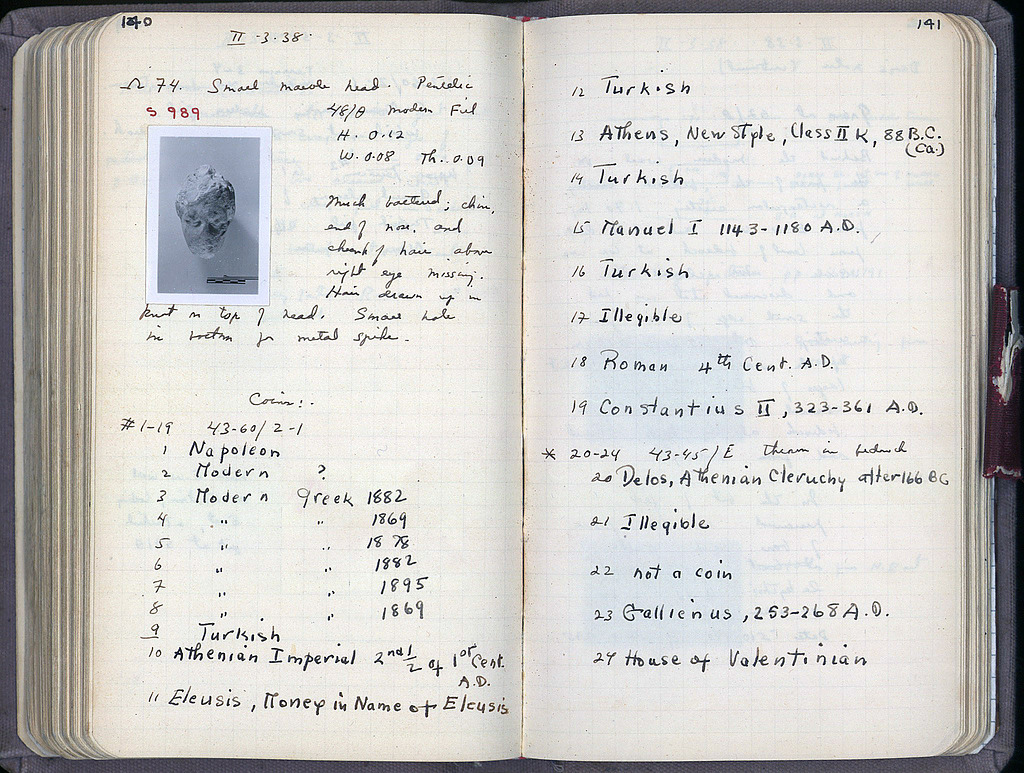 140
II - 3 - 38.
Ω 74. Small marble head. Pentelic
S 989
48/Θ modern Fill
H. 0.12
W. 0.08 Th. 0.09
Much battered; chin,
end of nose, and
chunk of hair above
right eye missing.
Hair drawn up in
knot on top of head. Small hole
in bottom for metal spike.
Coins:
#1-19 43-60/2-1
1 Napoleon
2 Modern ?
3 Modern Greek 1882
4 " " 1869
5 " " 1878
6 " " 1882
7 " " 1895
8 " " 1869
9 Turkish
10 Athenian Imperial 2nd 1/2 of 1st Cent.
A.D.
11 Eleusis, Money in Name of Eleusis
141
12 Turkish
13 Athens, New Style, Class II K, 88 B.C.
(Ca.)
14 Turkish
15 Manuel I 1143-1180 A.D.
16 Turkish
17 Illegible
18 Roman 4th Cent. A.D.
19 Constantius II, 323-361 A.D.
* 20-24 43-45/E thrown in bedrock
20 Delos, Athenian Cleruchy after 166 BC
21 Illegible
22 not a coin
23 Gallienus, 253-268 A.D.
24 House of Valentinian